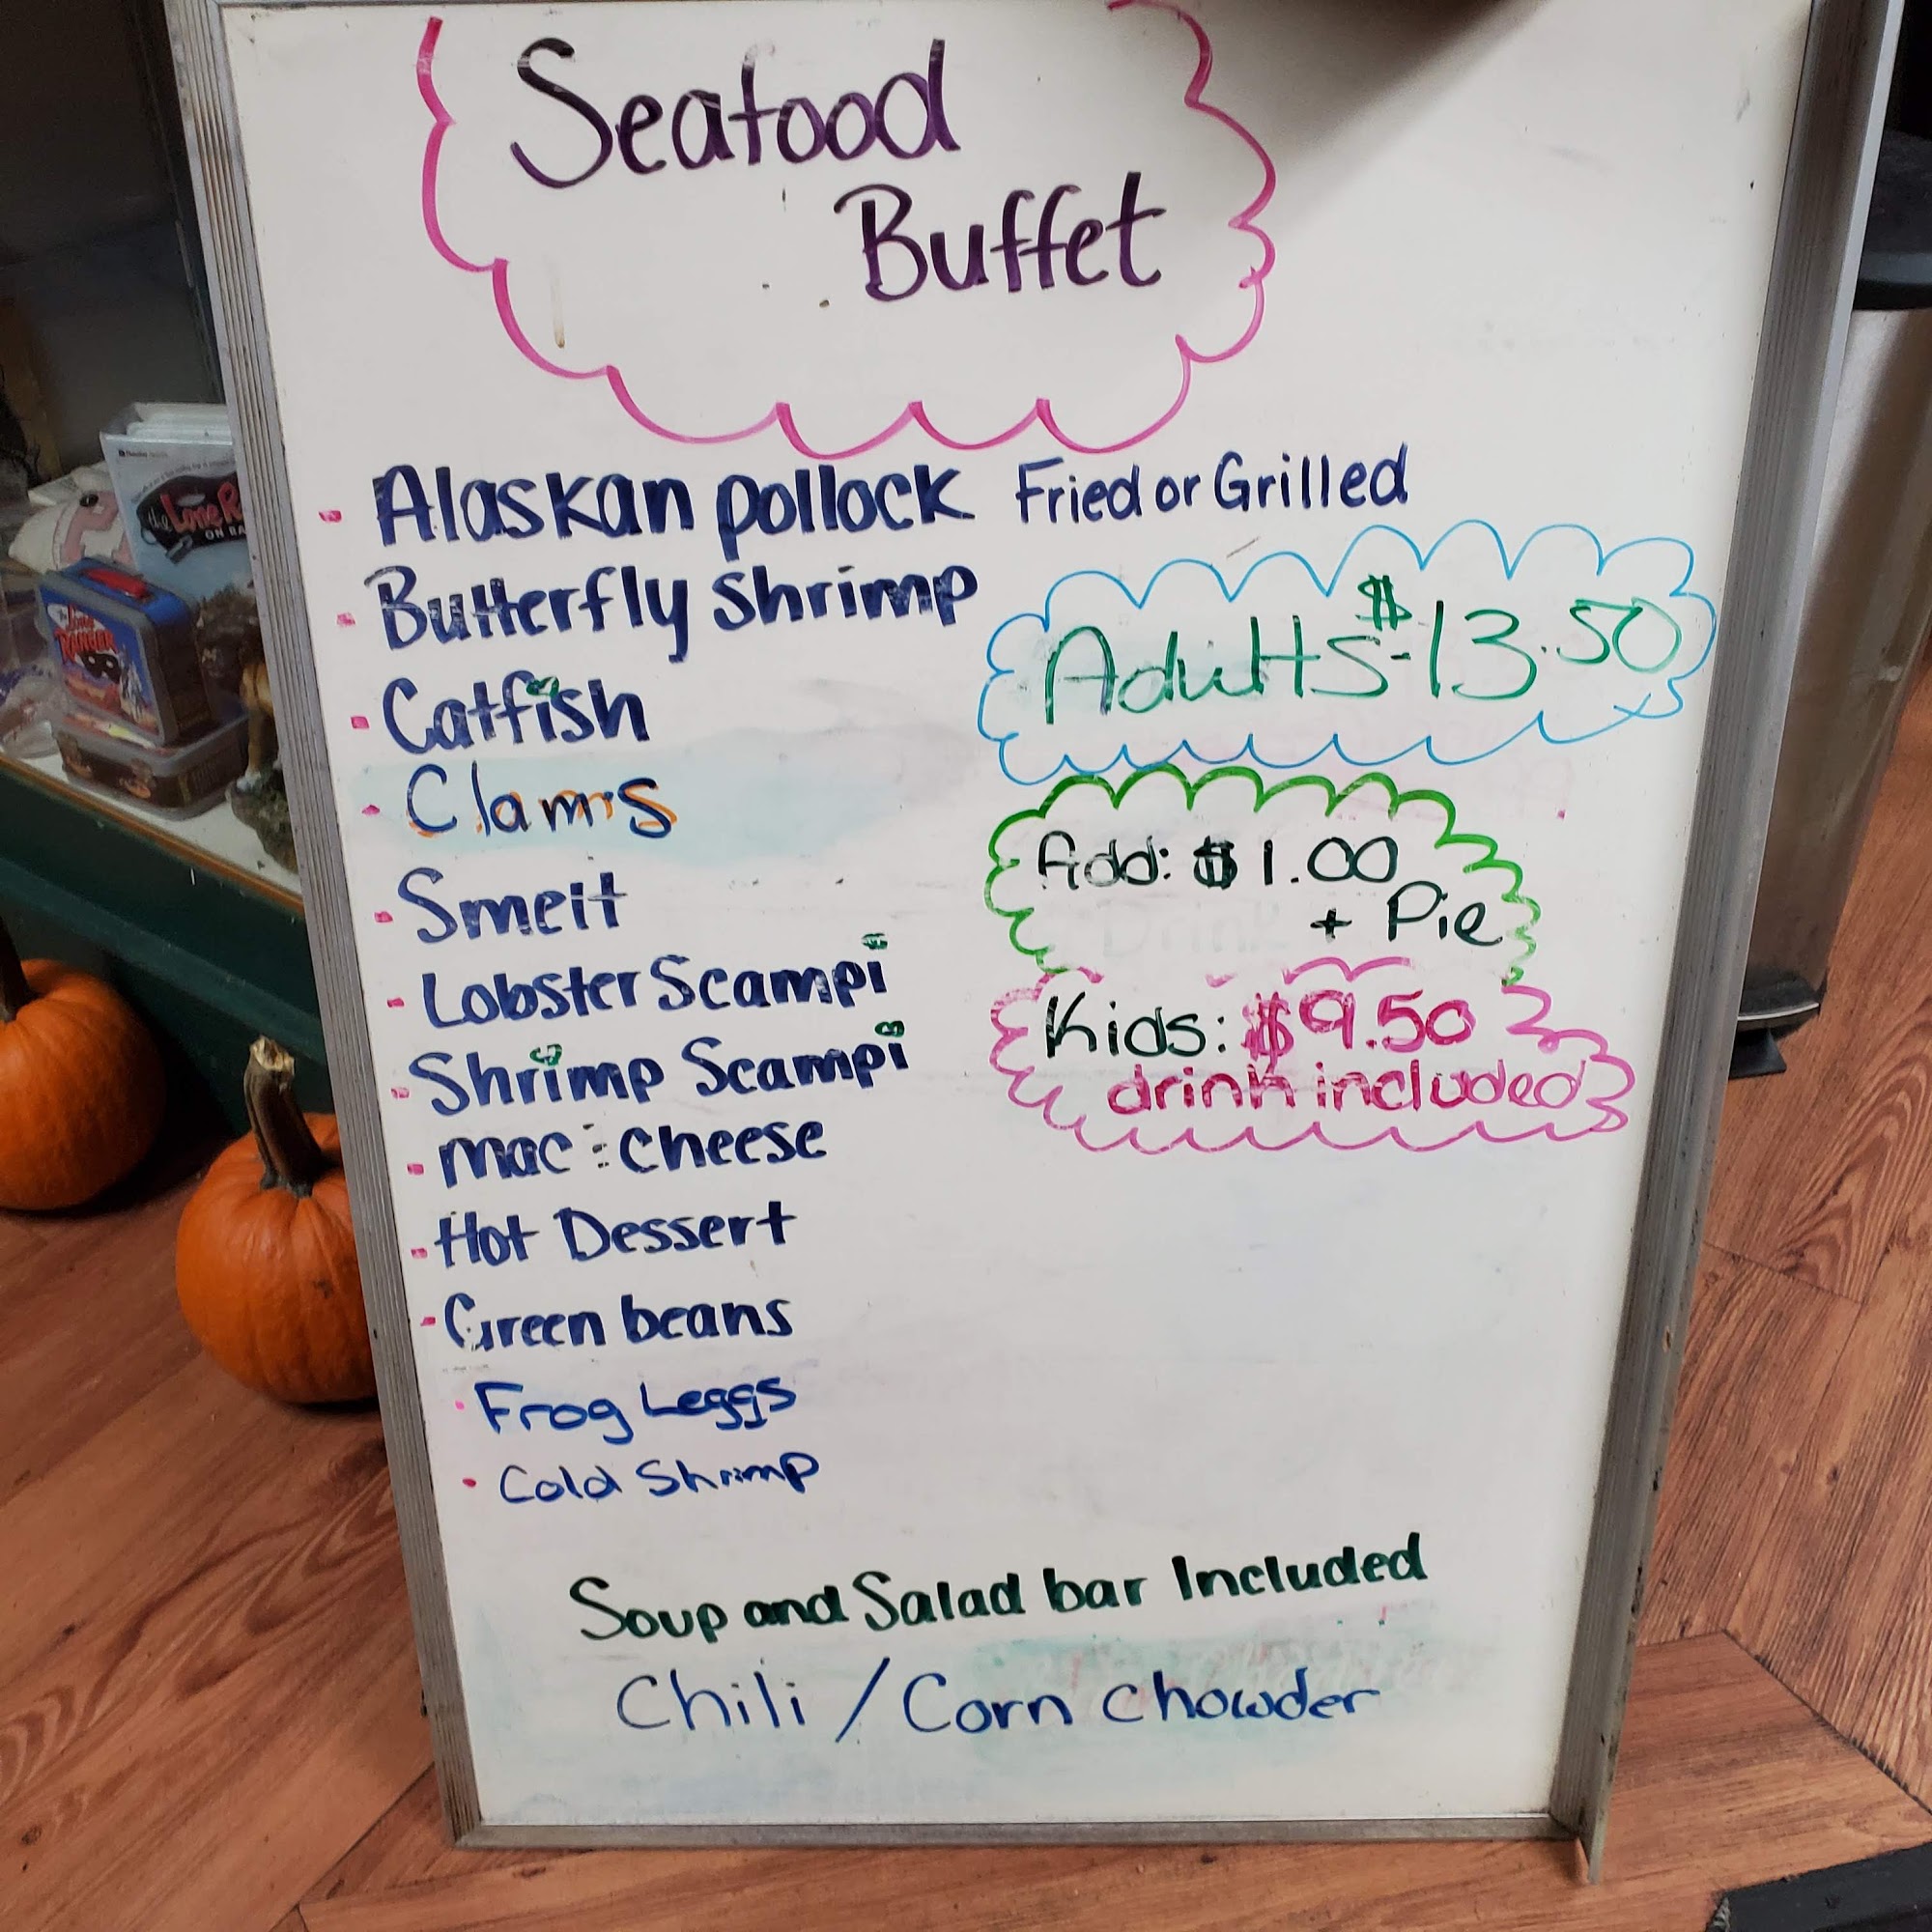 Seafood
Buffet
- Alaskan pollock Fried or Grilled
- Butterfly shrimp
Adults - $13.50
- Catfish
- Clams
Add: $1.00
+ Pie
- Smelt
- Lobster Scampi
Kids: $9.50
drink included
- Shrimp Scampi
- Mac : cheese
- Hot Dessert
- Green beans
- Frog Leggs
- Cold Shrimp
Soup and Salad bar Included
Chili / Corn Chowder
the Lone
RANGER